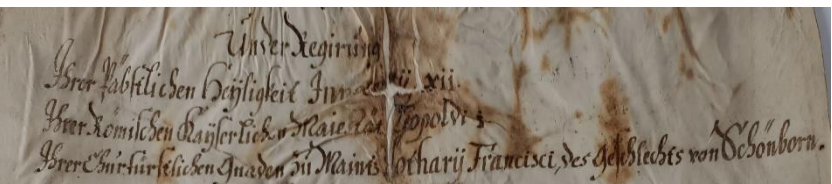 Under Regirung
Ihrer Päbstlichen Heÿligkeit Innocentÿ xii.
Ihrer Römischen Kaÿserlichen Maiestat Leopoldi
Ihrer Churfürstlichen Gnaden zu Maintz Lotharÿ Francisci, des geschlechts von Schönborn.